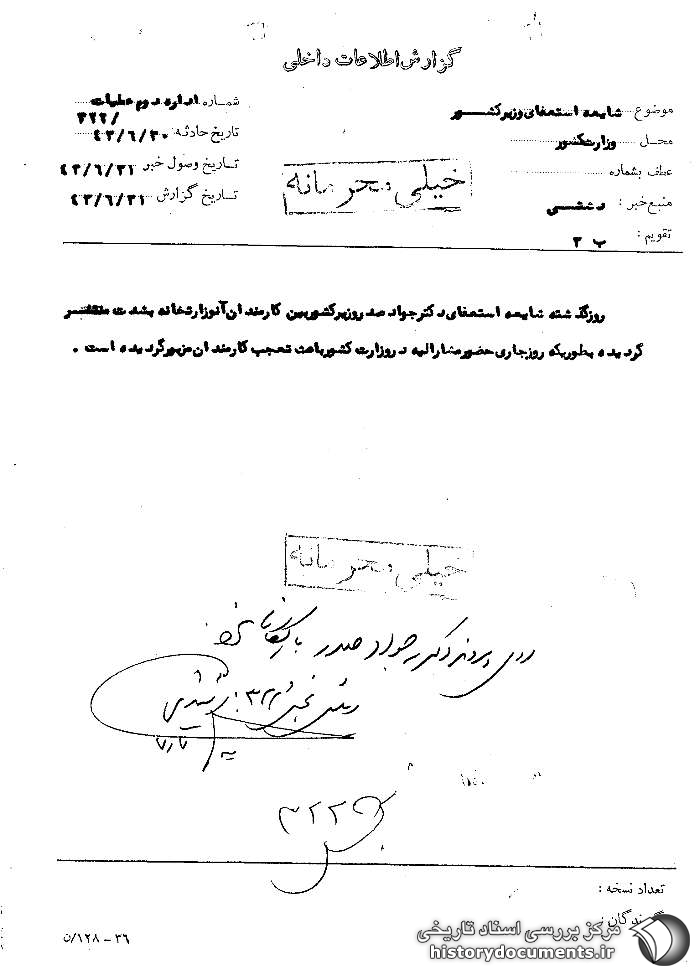 گزارش اطلاعات داخلی
موضوع شایعه استعفای وزیر کشور
محل وزارت کشور
عطف بشماره
منبع خبر : دشتی
تقویم : ب ۲
شماره اداره دوم عملیات
۳۲۲/
تاریخ حادثه ۴۳/۶/۳۰
تاریخ وصول خبر ۴۳/۶/۳۱
تاریخ گزارش ۴۳/۶/۳۱
خیلی محرمانه
روز گذشته شایعه استعفای دکتر جواد صدر وزیر کشور بین کارمندان آنوزارتخانه بشدت منتشر
گردیده بطوریکه روز جاری حضور مشارالیه در وزارت کشور باعث تعجب کارمندان مزبور گردیده است .
خیلی محرمانه
روی پرونده دکتر جواد صدر بایگانی شود
رئیس بخش ۳۲۲ :
۷/۲
۳۲۲
تعداد نسخه :
گیرندگان :
۳۶ - ۱۲۸/ن
مرکز بررسی اسناد تاریخی
historydocuments.ir